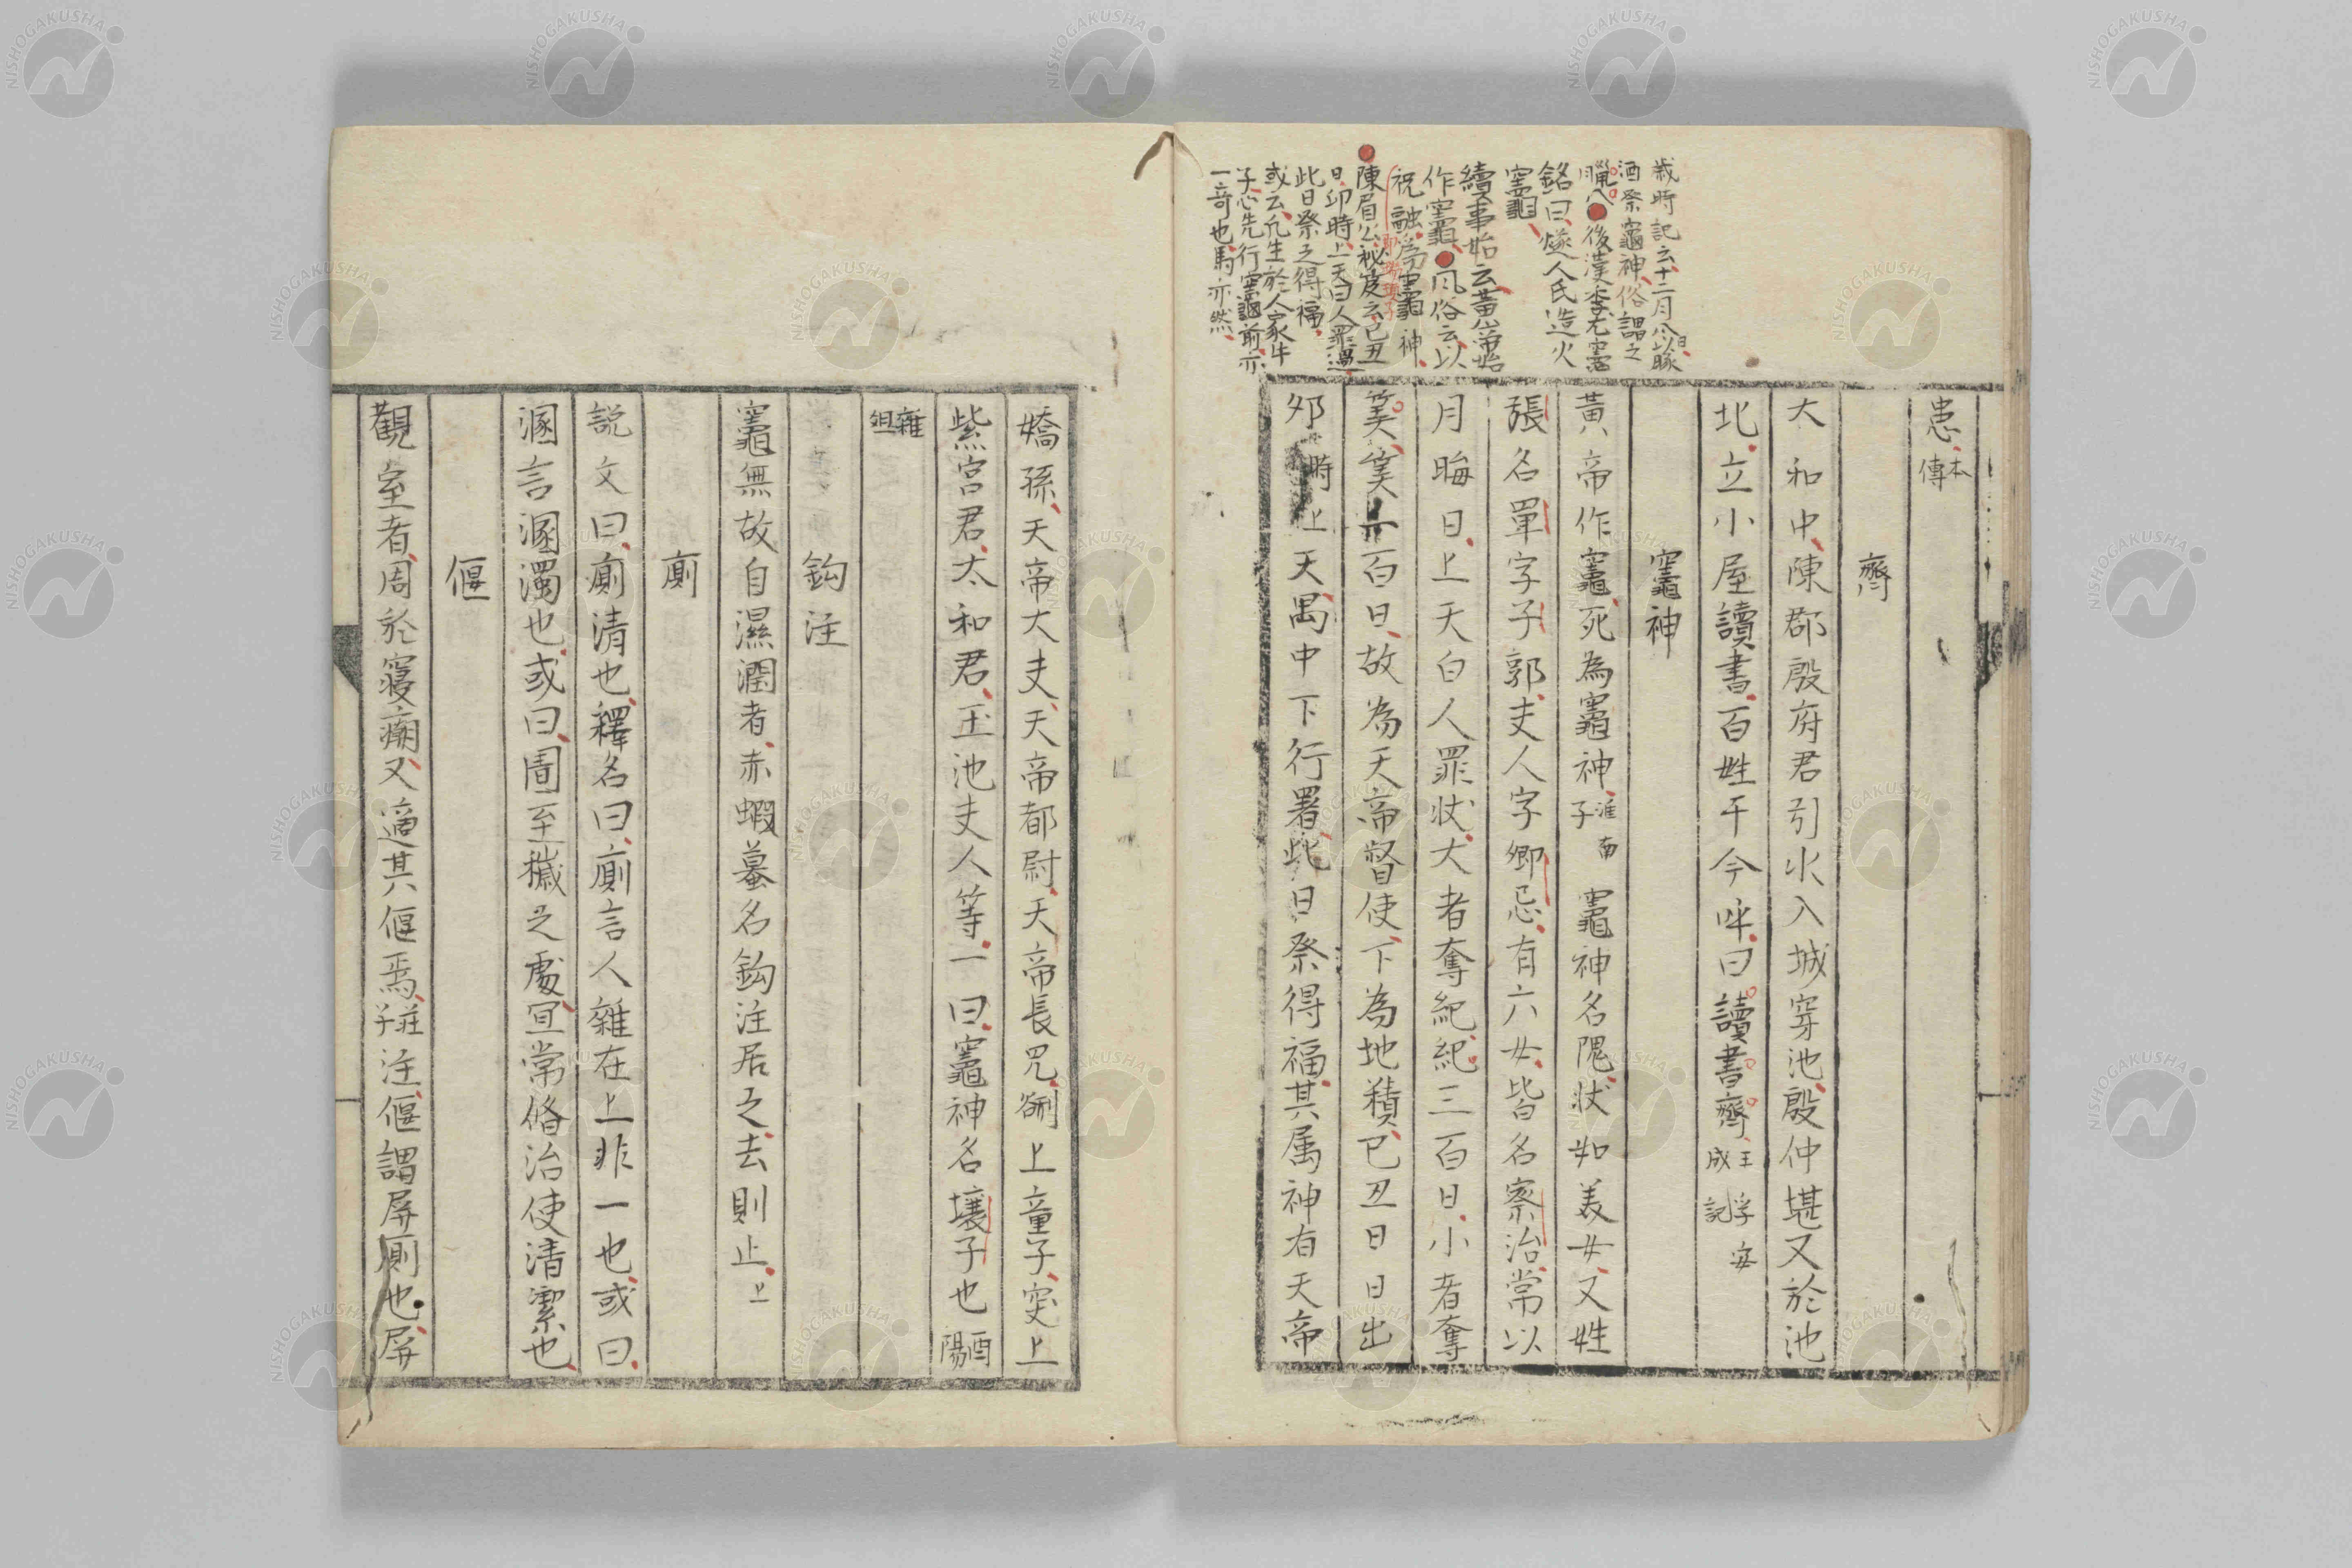 歳時記云十二月八日以豚
酒祭竈神俗謂之
臘八後漢李尤竈
銘曰燧人氏造火
竈
續事始云黃帝始
作竈風俗云以
祝融為竈神
陳眉公秘笈云己丑
日卯時上天曰人罪過
此日祭之得福
或云凡生於人家牛
子忌先行竈前亦
一奇也馬亦然
患本傳
齋
太和中陳郡殷府君引水入城穿池殷仲堪又於池
北立小屋讀書百姓于今呼曰讀書齋王孚安成記
竈神
黃帝作竈死為竈神淮南子竈神名隗狀如美女又姓
張名單字子郭夫人字卿忌有六女皆名察治常以
月晦日上天白人罪狀大者奪紀紀三百日小者奪
筭筭一百日故為天帝督使下為地積己丑日日出
卯時上天禺中下行署此日祭得福其属神有天帝
嬌孫天帝大夫天帝都尉天帝長兄硎上童子突上
紫宮君太和君玉池夫人等一曰竈神名壤子也酉陽
雜俎
鈎注
竈無故自濕潤者赤蝦蟇名鈎注居之去則止上
廁
説文曰廁清也釋名曰廁言人雜在上非一也或曰
溷言溷濁也或曰圊至穢之處宜常脩治使清潔也
偃
觀室者周於寢廟又適其偃焉莊子注偃謂屏廁也屏